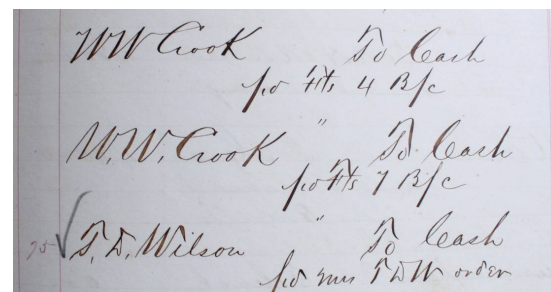 WW Crook To Cash
pd Frts 4 B/c
"
W.W. Crook To Cash
pd Frts 7 B/c
"
75 T. D. Wilson To Cash
pd mrs T D W order